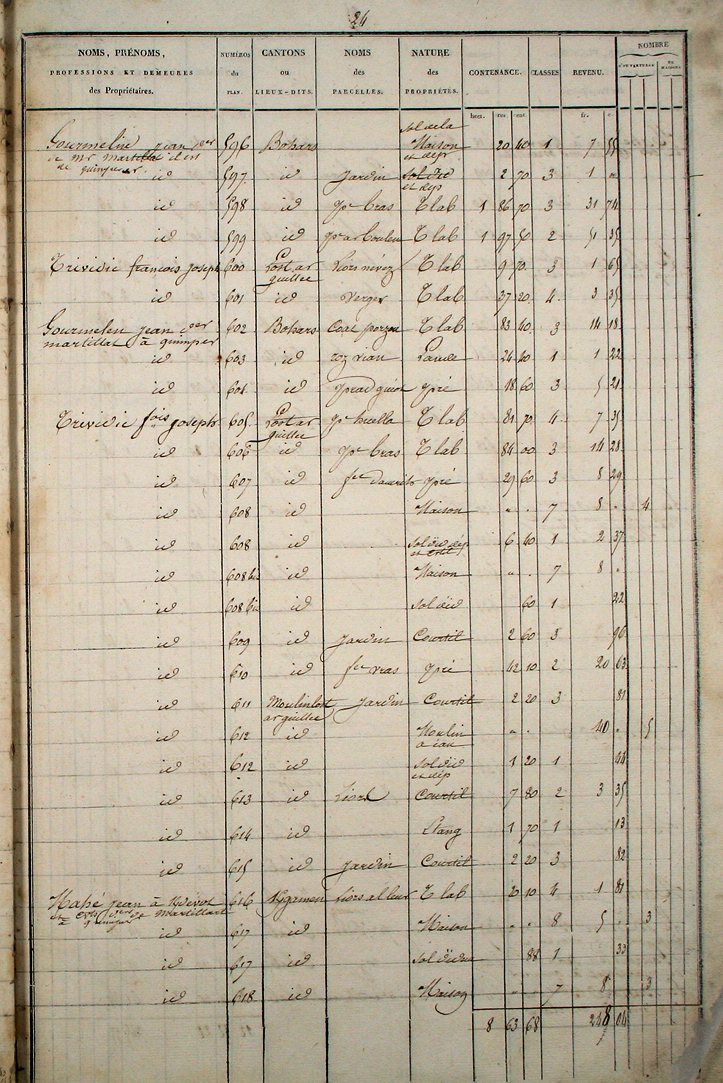 24
NOMS, PRÉNOMS, PROFESSIONS ET DEMEURES des Propriétaires. NUMÉROS du PLAN. CANTONS ou LIEUX-DITS. NOMS des PARCELLES. NATURE des PROPRIÉTÉS. CONTENANCE. CLASSES. REVENU. NOMBRE
hect. ares. cent. fr. c.
Gourmelin jean 596 Bohars Sol de la Maison et dép 20 40 1 7 55
de Mr martillat
id 597 id Jardin 2 70 3 1 "
id 598 id pc bras T lab 1 86 70 3 31 74
id 599 id T lab 1 97 50 2 51 35
Trividic françois joseph 600 Post ar guillec Liors névez T lab 9 70 3 1 65
id 601 id Verger T lab 37 20 4 3 35
Gourmelen jean 602 Bohars Coat porzou T lab 83 40 3 14 18
martillat à quimper
id 603 id roz vian Parue 24 40 1 1 22
id 604 id prad guiot pré 18 60 3 5 21
Trividic fois joseph 605 Post ar guillec T lab 81 70 4 7 35
id 606 id pc bras T lab 84 00 3 14 28
id 607 id pré 29 60 3 8 29
id 608 id Maison " " 7 8 " 4
id 608 id 6 40 1 2 37
id 608 bis id Maison " 7 8 "
id 608 bis id Sol id 60 1 22
id 609 id Jardin Courtil 2 60 3 96
id 610 id fc vras pré 42 10 2 20 63
id 611 Moulin Post ar guillec Jardin Courtil 2 20 3 81
id 612 id Moulin à eau " 40 " 5
id 612 id Sol id et dép 1 20 1 44
id 613 id Liors Courtil 7 80 2 3 35
id 614 id Etang 1 70 1 13
id 615 id Jardin Courtil 2 20 3 82
Mahé jean à 616 Liors al leur T lab 20 10 4 1 81
martillat
id 617 id Maison " " 8 5 " 3
id 617 id 88 1 33
id 618 id Maison 7 8 3
8 63 68 248 04